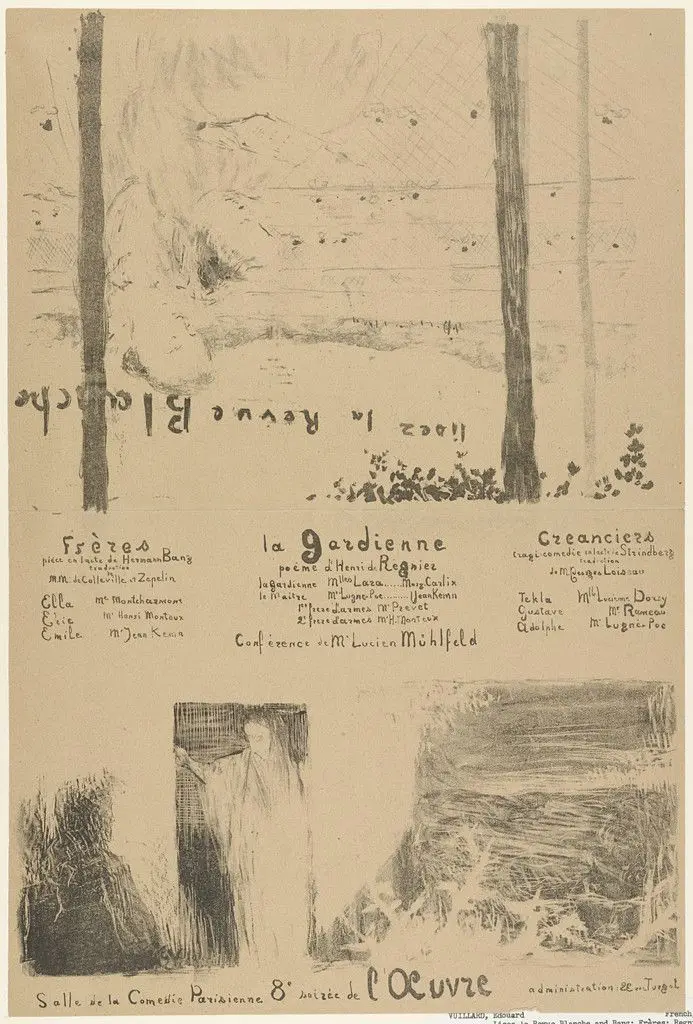 lisez la Revue Blanche
Frères
pièce en 1 acte de Hermann Bang
traduction
MM. de Colleville et Zepelin
Ella Mr Montcharmont
Eric Mr Henri Monteux
Emile Mr Jean Kemm
la gardienne
poème d'Henri de Régnier
la gardienne Mlles Lara......Marg Carlix
le Maître Mr Lugné-Poe.......Jean Kemm
1er frère d'armes Mr Prevet
2e frère d'armes Mr H. Monteux
Conférence de Mr Lucien Mühlfeld
Creanciers
tragi-comedie en 1 acte de Strindberg
traduction
de M. Georges Loiseau
Tekla Mlle Lucienne Dorcy
Gustave Mr Rameau
Adolphe Mr Lugné-Poe
Salle de la Comedie Parisienne 8e soirée de l'Œuvre administration: 22 rue Turgot
VUILLARD, Edouard French
Lisez la Revue Blanche and Bang: Frères: Regn